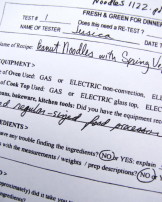 Noodles 1122.
FRESH & GREEN FOR DINNER
TEST # 1 Does this need a RE-TEST?
NAME OF TESTER Jessica DATE
Name of Recipe: Peanut Noodles with Spring Ve
EQUIPMENT>
of Oven Used: GAS or ELECTRIC non-convection, ELE
of Cook Top Used: GAS or ELECTRIC glass top, ELEC
bakeware, kitchen tools: Did you have the equipment
regular-sized food processor
EDIENTS>
have any trouble finding the ingredients? NO YES: explain
with the measurements / weights / prep descriptions? NO YE
proximately) did it take you